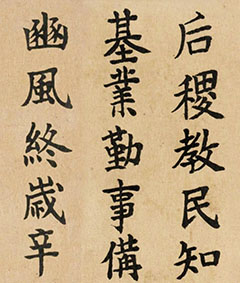 后稷教民知
基業勤事備
豳風終歲辛